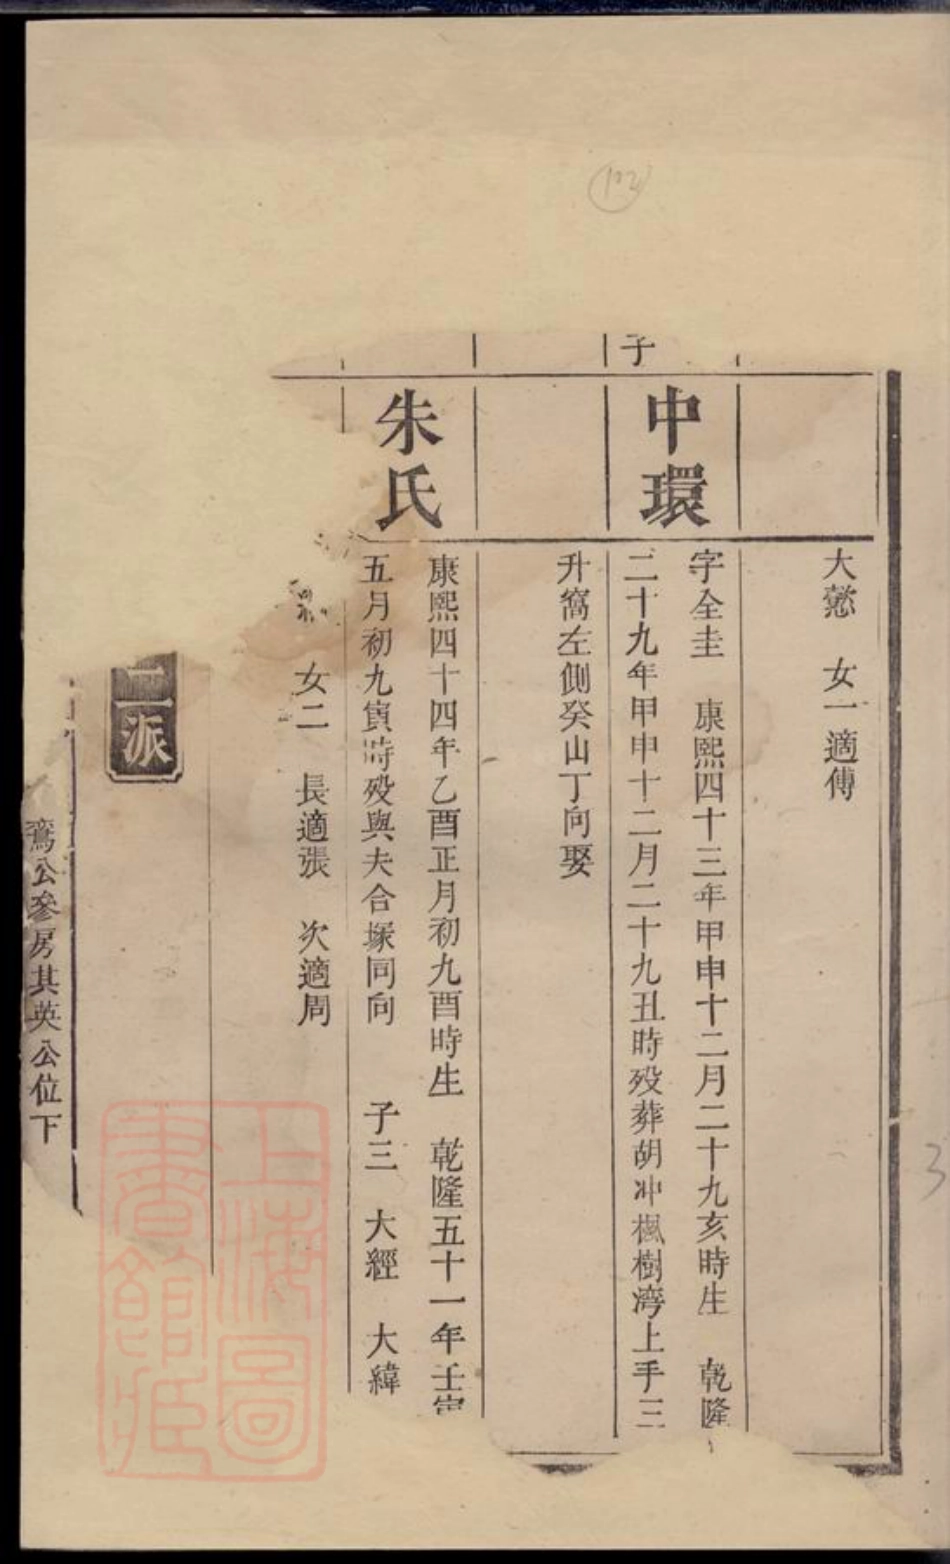 大憗 女一適傅
子
中環
字全圭 康熙四十三年甲申十二月二十九亥時生 乾隆
二十九年甲申十二月二十九丑時殁葬胡冲楓樹湾上手三
升窩左側癸山丁向娶
朱氏
康熙四十四年乙酉正月初九酉時生 乾隆五十一年壬寅
五月初九寅時殁與夫合塚同向 子三 大經 大緯
女二 長適張 次適周
二派
鴦公叅房其英公位下
上海圖
書館藏
102
3